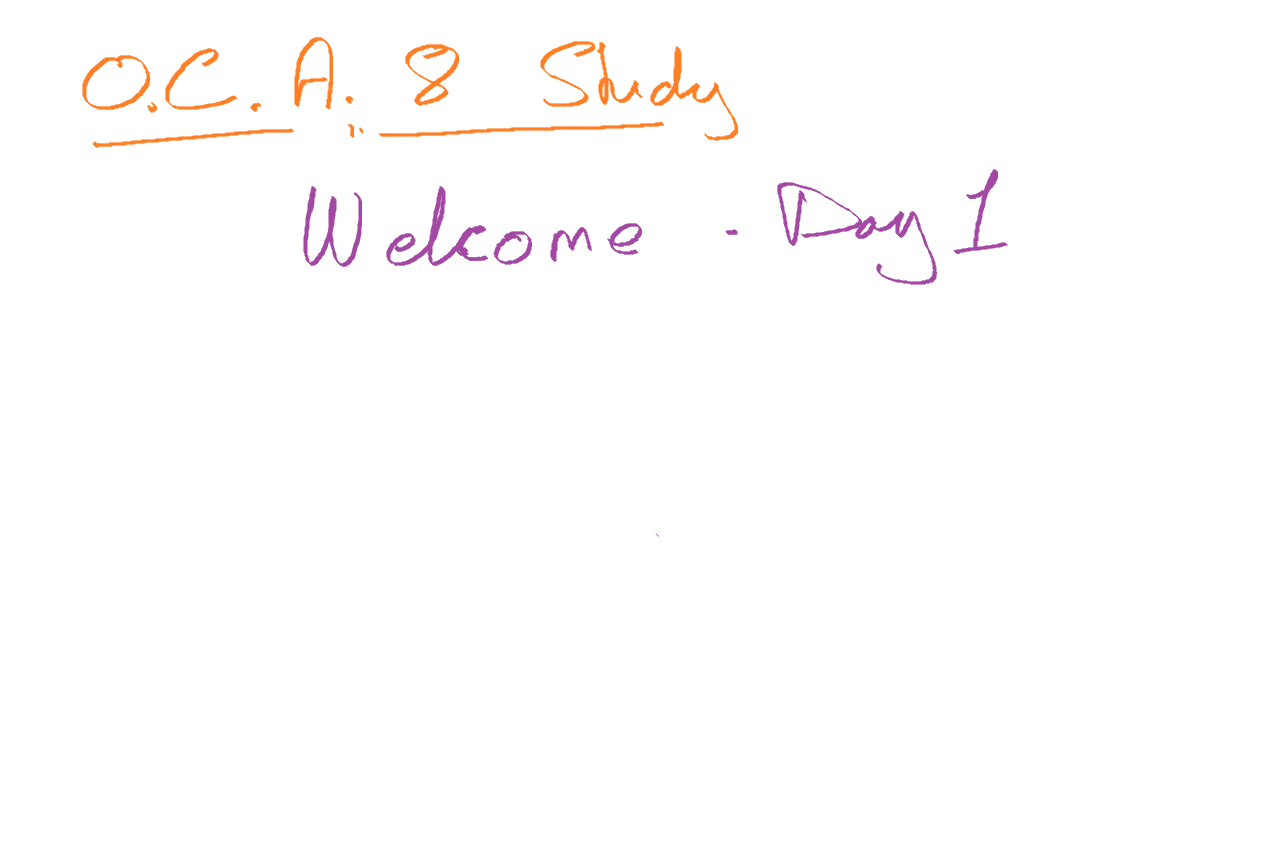 O.C.A. 8 Study
Welcome - Day 1